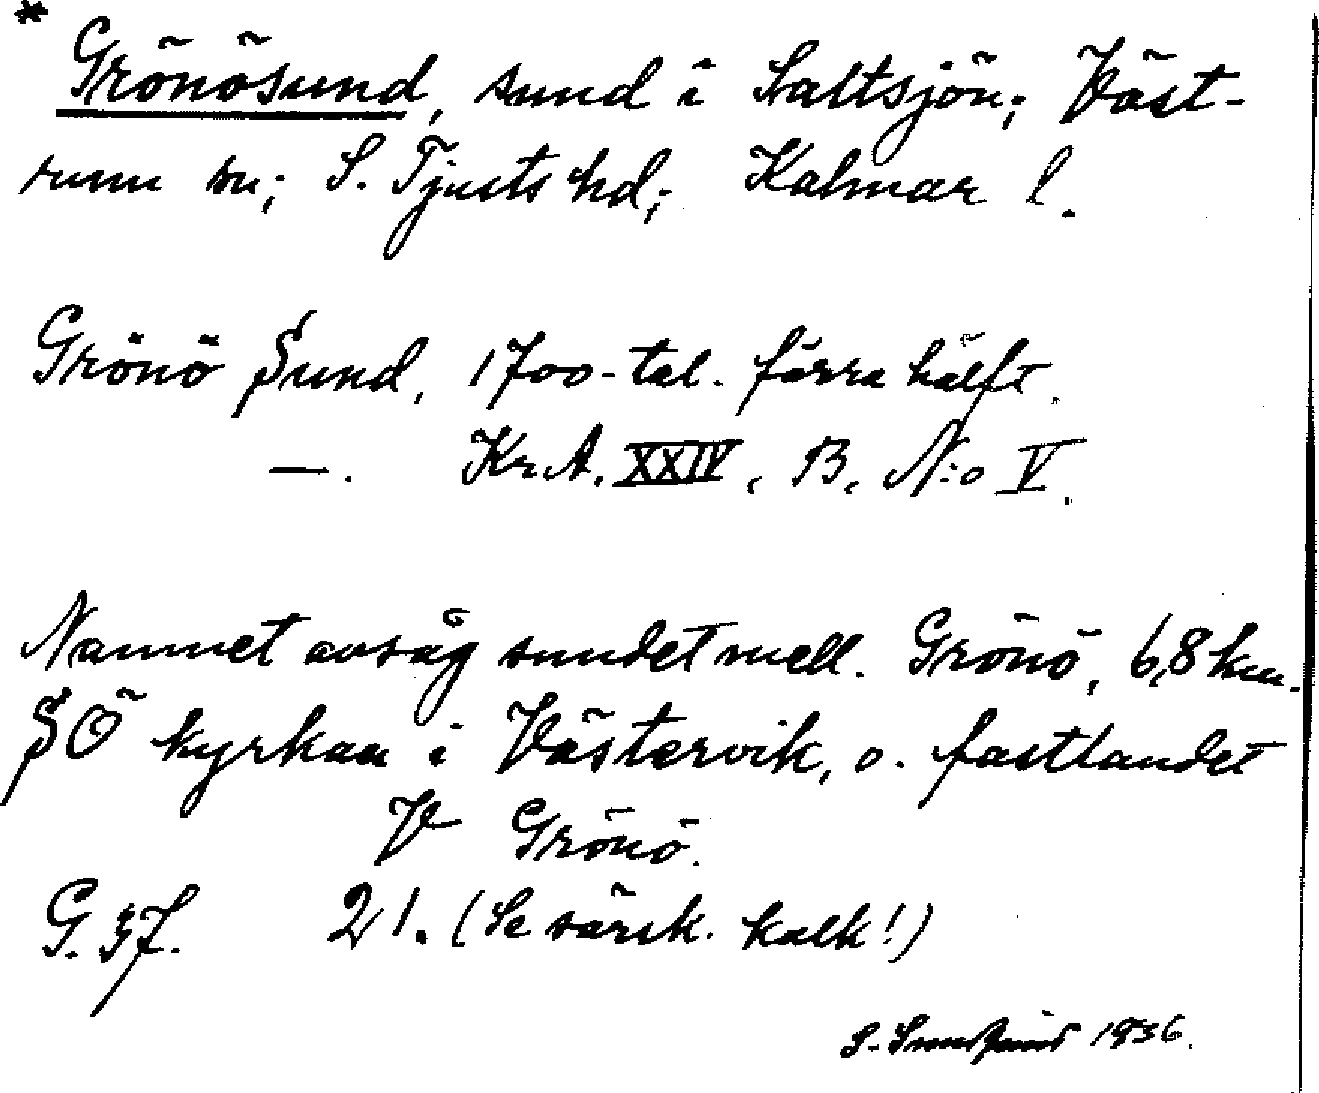 * Grönösund, sund i Saltsjön; Väst-
rum sn; S. Tjusts hd; Kalmar l.
Grönö Sund, 1700-tal. förra hälft.
—. KrA. XXIV, B, N:o V.
Namnet avsåg sundet mell. Grönö, 6,8 km.
SÖ kyrkan i Västervik, o. fastlandet
V Grönö.
G. 37. 21. (Se särsk. kalk!)
S. 1936.